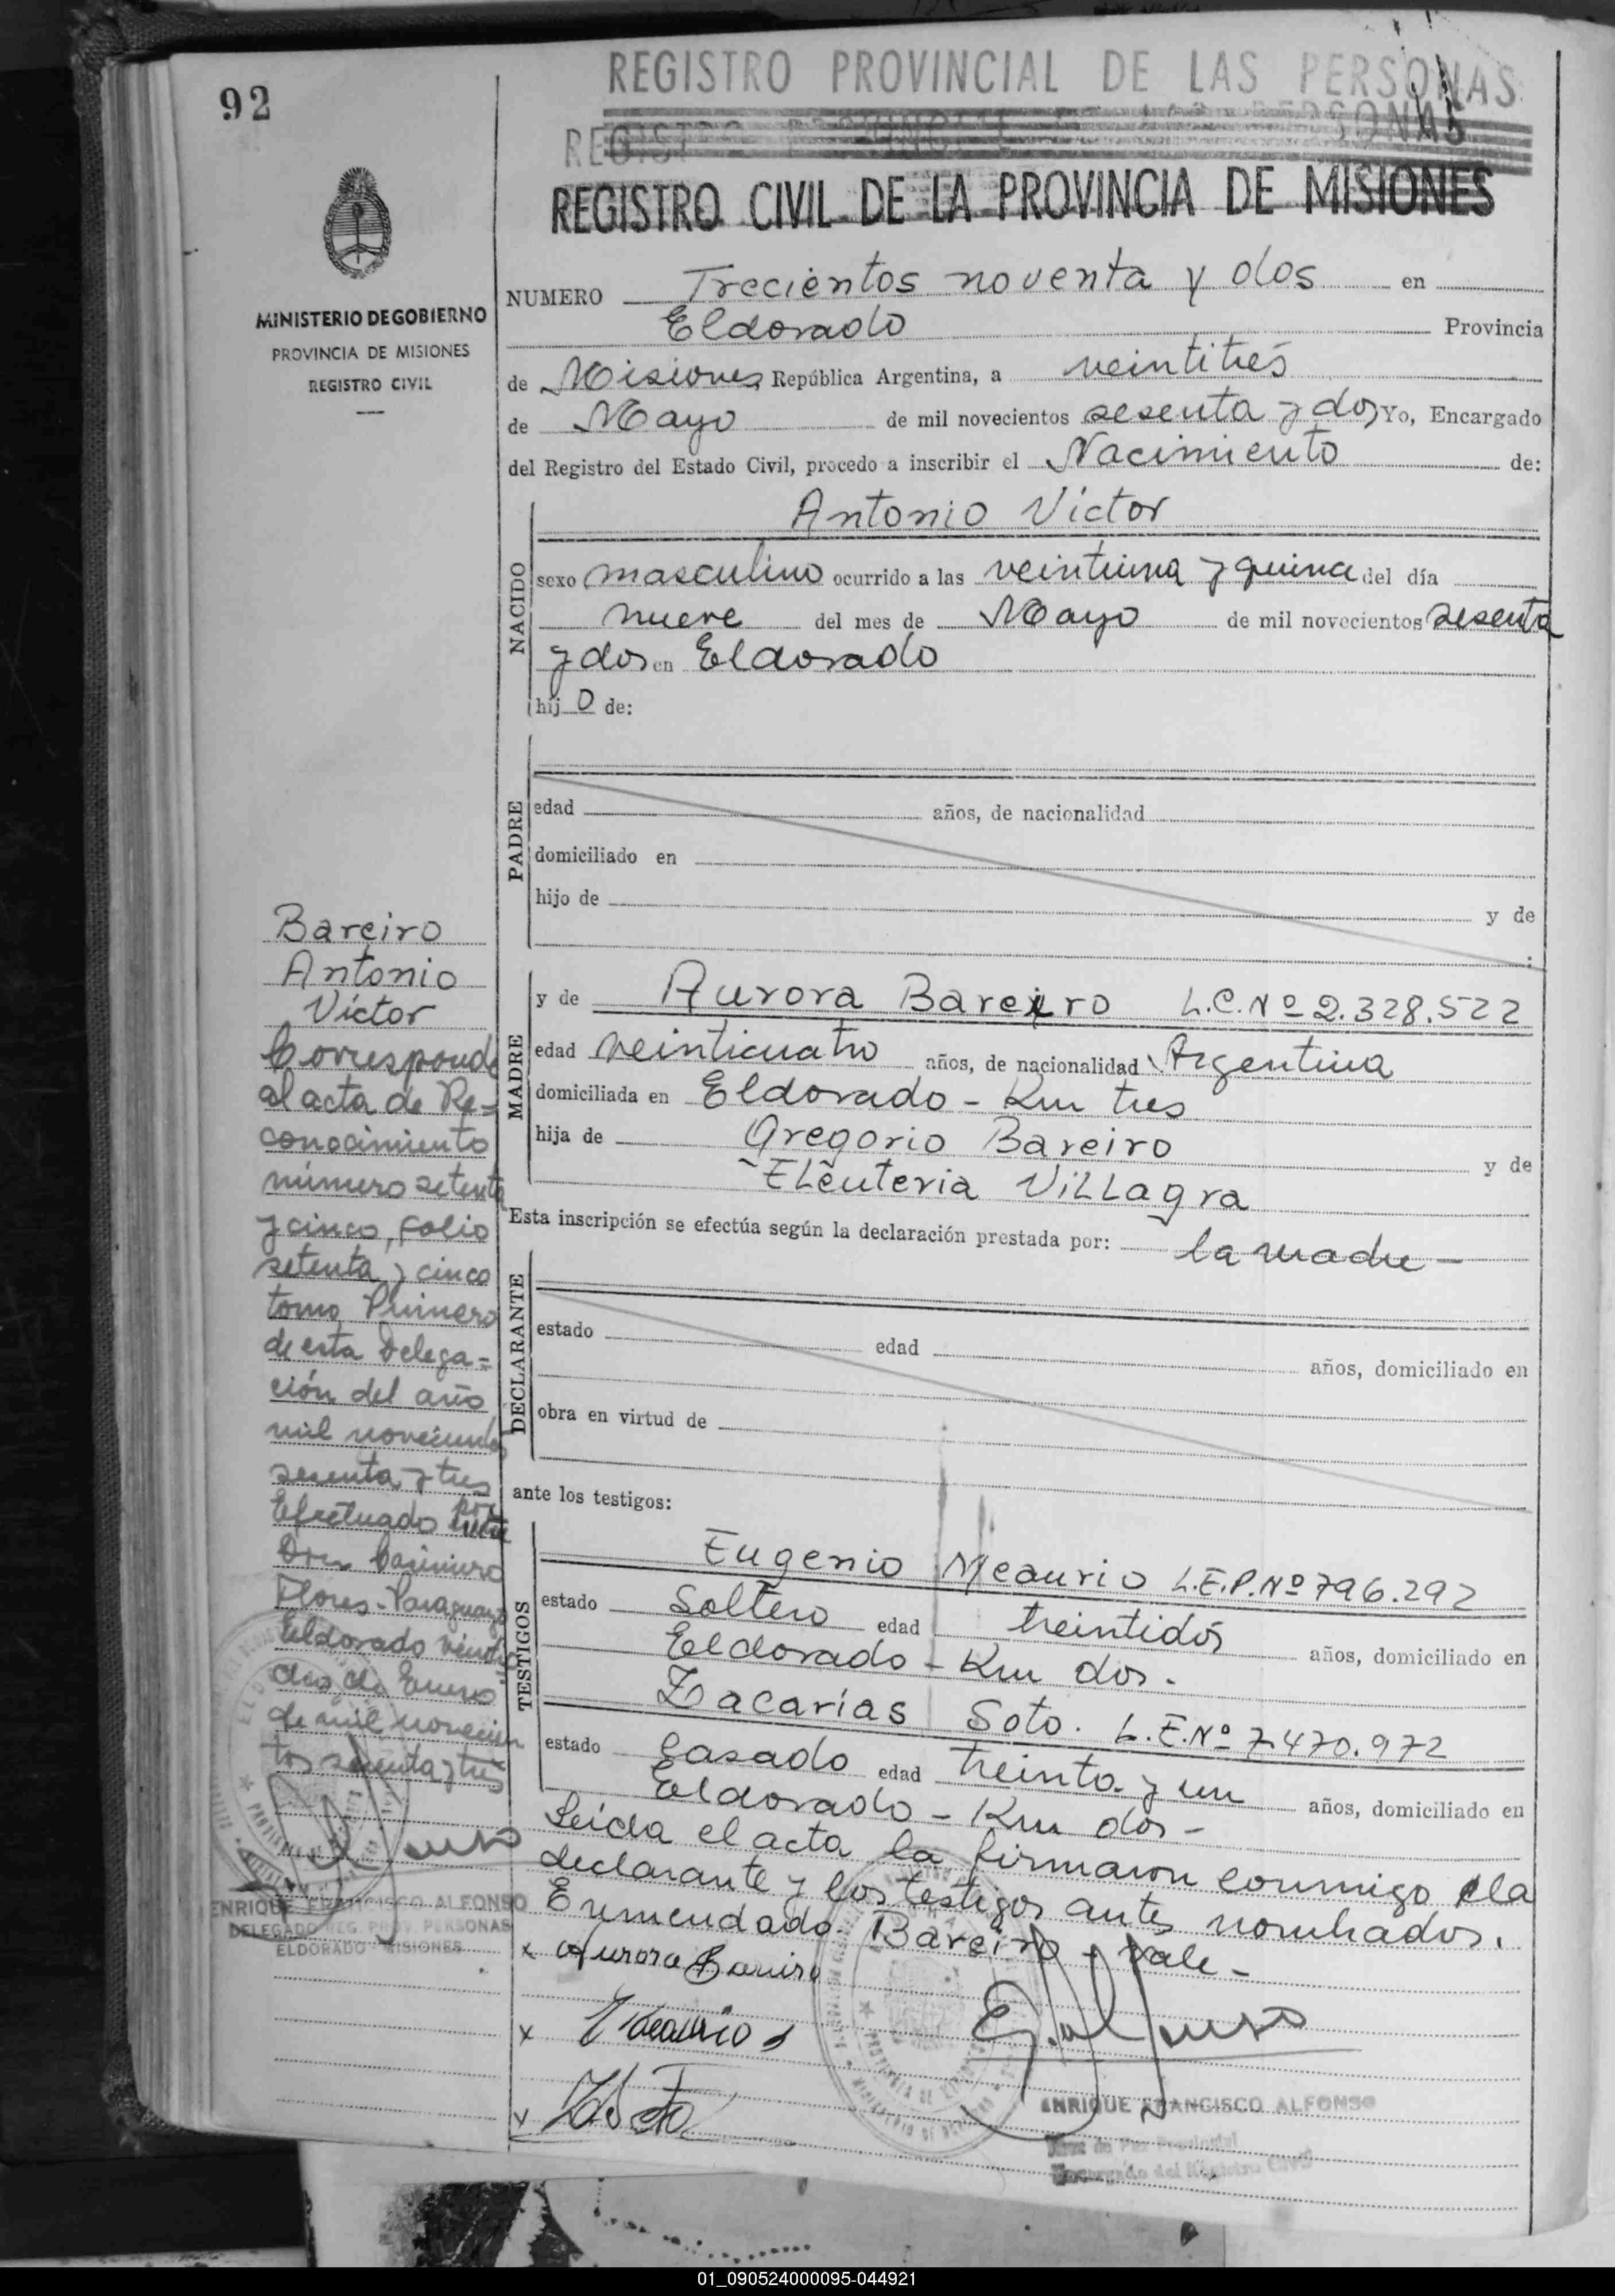 92
REGISTRO PROVINCIAL DE LAS PERSONAS
REGISTRO PROVINCIAL DE LAS PERSONAS
REGISTRO CIVIL DE LA PROVINCIA DE MISIONES
MINISTERIO DE GOBIERNO
PROVINCIA DE MISIONES
REGISTRO CIVIL
NUMERO Trecientos noventa y dos en
Eldorado Provincia
de Misiones República Argentina, a veintitrés
de Mayo de mil novecientos sesenta y dos Yo, Encargado
del Registro del Estado Civil, procedo a inscribir el Nacimiento de:
NACIDO
Antonio Víctor
sexo masculino ocurrido a las veintiuna y quince del día
nueve del mes de Mayo de mil novecientos sesenta
y dos en Eldorado
hij o de:
PADRE
edad años, de nacionalidad
domiciliado en
hijo de y de
MADRE
y de Aurora Bareiro L.C.Nº 2.328.522
edad veinticuatro años, de nacionalidad Argentina
domiciliada en Eldorado - Km tres
hija de Gregorio Bareiro y de
Eleuteria Villagra
Esta inscripción se efectúa según la declaración prestada por: la madre -
DECLARANTE
estado edad años, domiciliado en
obra en virtud de
ante los testigos:
TESTIGOS
Eugenio Meaurio L.E.P.Nº 796.292
estado Soltero edad treintidós años, domiciliado en
Eldorado - Km dos.
Zacarías Soto. L.E.Nº 7.470.972
estado Casado edad treinta y un años, domiciliado en
Eldorado - Km dos -
Leída el acta la firmaron conmigo la
declarante y los testigos antes nombrados.
Enmendado: Bareiro - Vale -
x Aurora Bareiro
x E Meaurio
x Z Soto
E. Alfonso
ENRIQUE FRANCISCO ALFONSO
Juez de Paz Provincial
Encargado del Registro Civil
Bareiro
Antonio
Víctor
Corresponde
al acta de Re-
conocimiento
número setenta
y cinco, folio
setenta y cinco
tomo Primero
de esta Delega-
ción del año
mil novecientos
sesenta y tres
Efectuado por
Don Casimiro
Flores - Paraguayo
Eldorado veinti
dos de Enero
de mil novecien
tos sesenta y tres
ENRIQUE FRANCISCO ALFONSO
DELEGADO REG. PROV. PERSONAS
ELDORADO - MISIONES
01_090524000095-044921